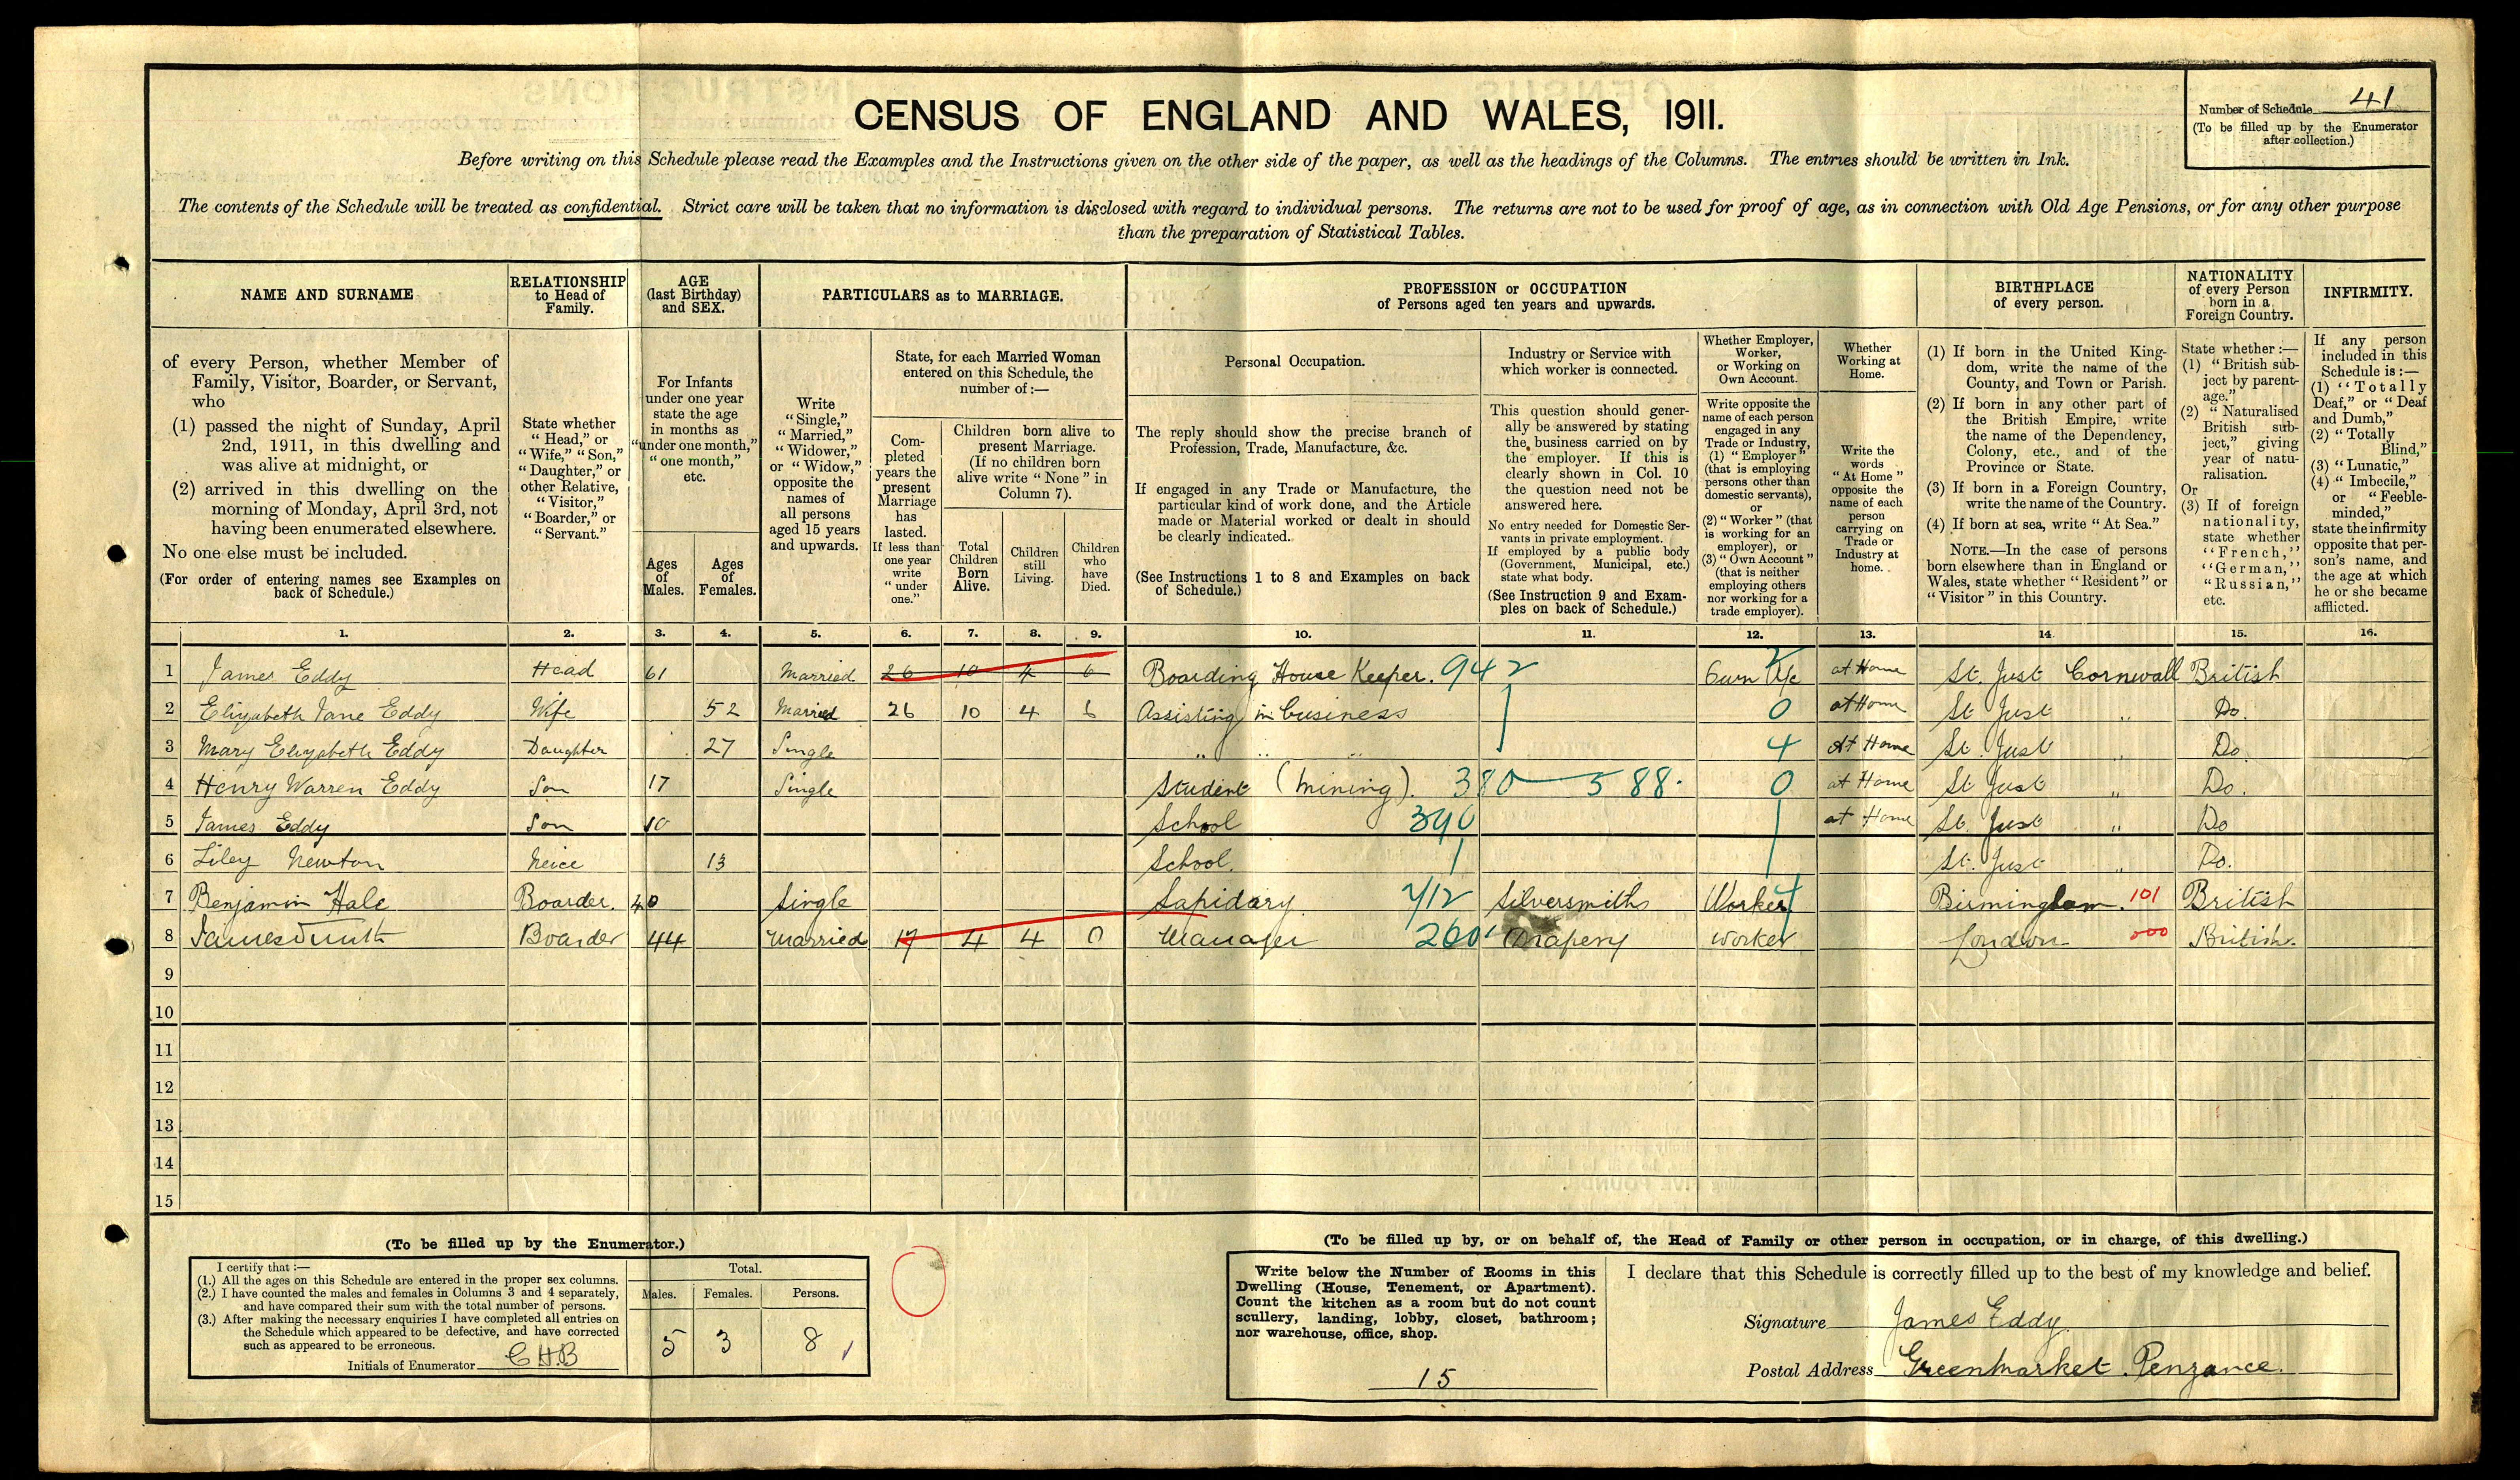 CENSUS OF ENGLAND AND WALES, 1911.
Number of Schedule 41
(To be filled up by the Enumerator
after collection.)
Before writing on this Schedule please read the Examples and the Instructions given on the other side of the paper, as well as the headings of the Columns. The entries should be written in Ink.
The contents of the Schedule will be treated as confidential. Strict care will be taken that no information is disclosed with regard to individual persons. The returns are not to be used for proof of age, as in connection with Old Age Pensions, or for any other purpose
than the preparation of Statistical Tables.
NAME AND SURNAME
of every Person, whether Member of
Family, Visitor, Boarder, or Servant,
who
(1) passed the night of Sunday, April
2nd, 1911, in this dwelling and
was alive at midnight, or
(2) arrived in this dwelling on the
morning of Monday, April 3rd, not
having been enumerated elsewhere.
No one else must be included.
(For order of entering names see Examples on
back of Schedule.)
RELATIONSHIP
to Head of
Family.
State whether
"Head," or
"Wife," "Son,"
"Daughter," or
other Relative,
"Visitor,"
"Boarder," or
"Servant."
AGE
(last Birthday)
and SEX.
For Infants
under one year
state the age
in months as
"under one month,"
"one month,"
etc.
Ages
of
Males.
Ages
of
Females.
PARTICULARS as to MARRIAGE.
Write
"Single,"
"Married,"
"Widower,"
or "Widow,"
opposite the
names of
all persons
aged 15 years
and upwards.
State, for each Married Woman
entered on this Schedule, the
number of:—
Com-
pleted
years the
present
Marriage
has
lasted.
If less than
one year
write
"under
one."
Children born alive to
present Marriage.
(If no children born
alive write "None" in
Column 7).
Total
Children
Born
Alive.
Children
still
Living.
Children
who
have
Died.
PROFESSION or OCCUPATION
of Persons aged ten years and upwards.
Personal Occupation.
The reply should show the precise branch of
Profession, Trade, Manufacture, &c.
If engaged in any Trade or Manufacture, the
particular kind of work done, and the Article
made or Material worked or dealt in should
be clearly indicated.
(See Instructions 1 to 8 and Examples on back
of Schedule.)
Industry or Service with
which worker is connected.
This question should gener-
ally be answered by stating
the business carried on by
the employer. If this is
clearly shown in Col. 10
the question need not be
answered here.
No entry needed for Domestic Ser-
vants in private employment.
If employed by a public body
(Government, Municipal, etc.)
state what body.
(See Instruction 9 and Exam-
ples on back of Schedule.)
Whether Employer,
Worker,
or Working on
Own Account.
Write opposite the
name of each person
engaged in any
Trade or Industry,
(1) "Employer"
(that is employing
persons other than
domestic servants),
or
(2) "Worker" (that
is working for an
employer), or
(3) "Own Account"
(that is neither
employing others
nor working for a
trade employer).
Whether
Working at
Home.
Write the
words
"At Home"
opposite the
name of each
person
carrying on
Trade or
Industry at
home.
BIRTHPLACE
of every person.
(1) If born in the United King-
dom, write the name of the
County, and Town or Parish.
(2) If born in any other part of
the British Empire, write
the name of the Dependency,
Colony, etc., and of the
Province or State.
(3) If born in a Foreign Country,
write the name of the Country.
(4) If born at sea, write "At Sea."
NOTE.—In the case of persons
born elsewhere than in England or
Wales, state whether "Resident" or
"Visitor" in this Country.
NATIONALITY
of every Person
born in a
Foreign Country.
State whether:—
(1) "British sub-
ject by parent-
age."
(2) "Naturalised
British sub-
ject," giving
year of natu-
ralisation.
Or
(3) If of foreign
nationality,
state whether
"French,"
"German,"
"Russian,"
etc.
INFIRMITY.
If any person
included in this
Schedule is:—
(1) "Totally
Deaf," or "Deaf
and Dumb,"
(2) "Totally
Blind,"
(3) "Lunatic,"
(4) "Imbecile,"
or "Feeble-
minded,"
state the infirmity
opposite that per-
son's name, and
the age at which
he or she became
afflicted.
1. 2. 3. 4. 5. 6. 7. 8. 9. 10. 11. 12. 13. 14. 15. 16.
1 James Eddy Head 61 Married 26 10 4 6 Boarding House Keeper. 942 Own A/c 2 at Home St. Just Cornwall British
2 Elizabeth Jane Eddy Wife 52 Married 26 10 4 6 Assisting in business 0 at Home St Just " Do.
3 Mary Elizabeth Eddy Daughter 27 Single " " " 4 At Home St. Just " Do.
4 Henry Warren Eddy Son 17 Single Student (Mining). 380 588. 0 at Home St Just " Do.
5 James Eddy Son 10 School 390 at Home St. Just " Do
6 Liley Newton Neice 13 School. St. Just " Do.
7 Benjamin Hale Boarder. 40 Single Lapidary 712 Silversmiths Worker Birmingham. 101 British
8 James Smith Boarder 44 Married 17 4 4 0 Manager 260 Drapery Worker London 000 British.
9
10
11
12
13
14
15
(To be filled up by the Enumerator.)
I certify that:—
(1.) All the ages on this Schedule are entered in the proper sex columns.
(2.) I have counted the males and females in Columns 3 and 4 separately,
and have compared their sum with the total number of persons.
(3.) After making the necessary enquiries I have completed all entries on
the Schedule which appeared to be defective, and have corrected
such as appeared to be erroneous.
Initials of Enumerator C H.B
Total.
Males. Females. Persons.
5 3 8
(To be filled up by, or on behalf of, the Head of Family or other person in occupation, or in charge, of this dwelling.)
Write below the Number of Rooms in this
Dwelling (House, Tenement, or Apartment).
Count the kitchen as a room but do not count
scullery, landing, lobby, closet, bathroom;
nor warehouse, office, shop.
15
I declare that this Schedule is correctly filled up to the best of my knowledge and belief.
Signature James Eddy.
Postal Address Greenmarket. Penzance.